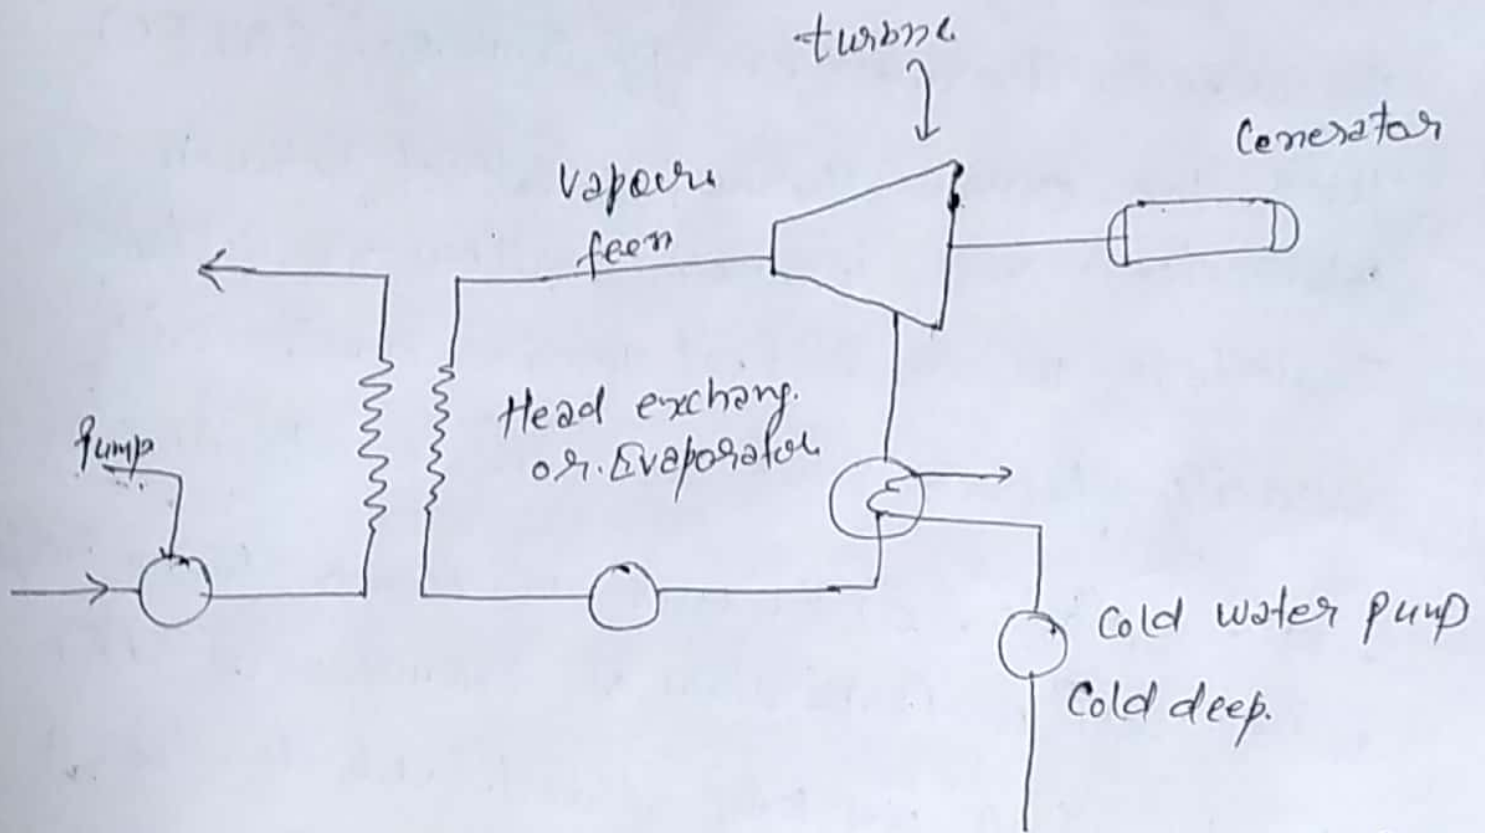 turbine
Generator
Vapour
feen
Head exchang.
or. Evaporator
Pump
Cold water pump
Cold deep.